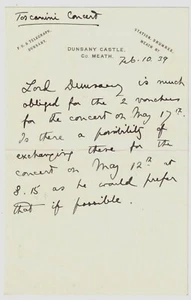 Toscanini Concert
P.O. & TELEGRAPH,
DUNSANY
STATION, DRUMREE,
MEATH RY
DUNSANY CASTLE,
Co MEATH.
Feb. 10. 39
Lord Dunsany is much
obliged for the 2 vouchers
for the concert on May 17th.
Is there a possibility of
exchanging these for the
concert on May 12th at
8.15 as he would prefer
that if possible.